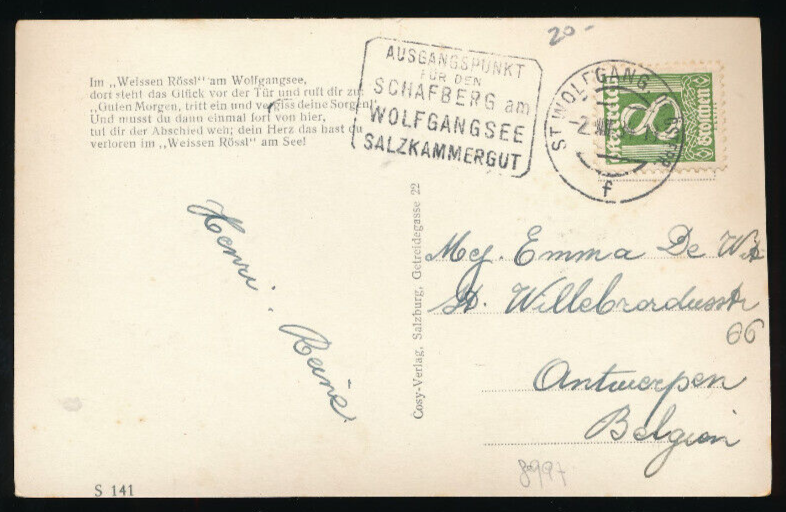 20-
Im „Weissen Rössl" am Wolfgangsee,
dort steht das Glück vor der Tür und ruft dir zu:
„Guten Morgen, tritt ein und vergiss deine Sorgen!"
Und musst du dann einmal fort von hier,
tut dir der Abschied weh; dein Herz das hast du
verloren im „Weissen Rössl" am See!
AUSGANGSPUNKT
FÜR DEN
SCHAFBERG am
WOLFGANGSEE
SALZKAMMERGUT
ST. WOLFGANG
f
8
Groschen
Henri. Reine
Cosy-Verlag, Salzburg, Getreidegasse 22
Mej. Emma De Wit
St. Willebrordusstr
66
Antwerpen
Belgien
8997
S 141